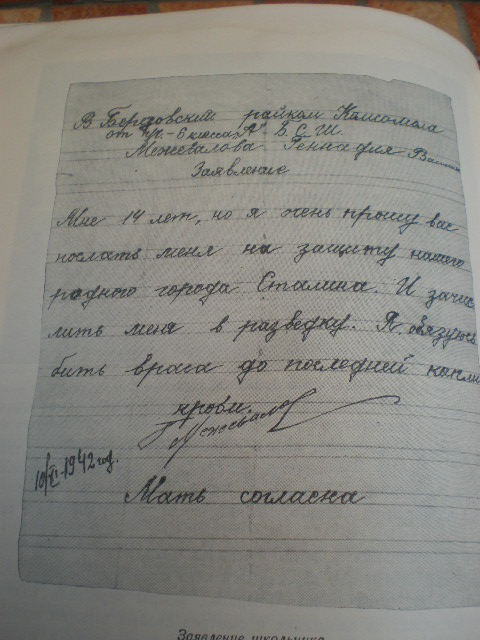 В Бердовский райком Комсомола
от уч.-6 класса "А" Б.С.Ш.
Межевалова Геннадия
Заявление
Мне 14 лет, но я очень прошу вас
послать меня на защиту нашего
родного города Сталина. И зачис
лить меня в разведку. Я обязуюсь
бить врага до последней капли
крови.
Межевалов
10/XI-1942 год.
Мать согласна
Заявление школьника